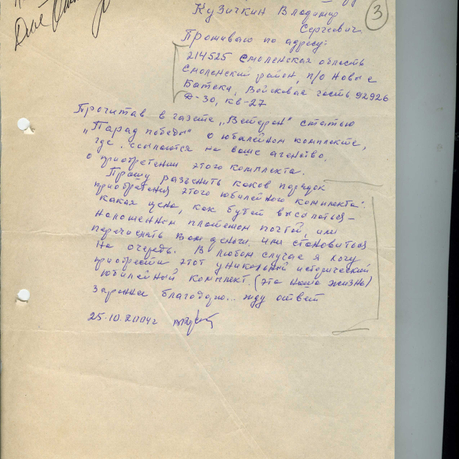 3
Кузичкин Владимир
Сергеевич
Проживаю по адресу:
214525 Смоленская область
Смоленский район, п/о Новые
Батеки, Войсковая часть 92926
Д-30, кв-27
Прочитав в газете „Ветеран" статью
„Парад победы" о юбилейном комплекте,
где ссылаются на ваше агенство,
о приобретении этого комплекта.
Прошу разъяснить каков порядок
приобретения этого юбилейного комплекта.
Какая цена, как будет высылаться –
наложенным платежом почтой, или
перечислять Вам деньги или становиться
на очередь. В любом случае я хочу
приобрести этот уникальный исторический
юбилейный комплект (это наша жизнь)
Заранее благодарю... жду ответ
25.10.2004г